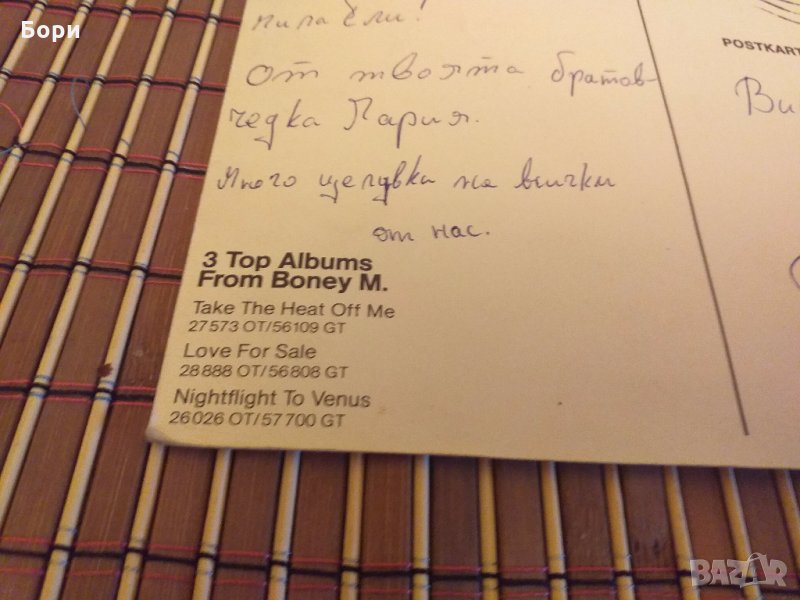 Бори
Мила Ели!
От твоята братов-
чедка Мария.
Много целувки на всички
от нас.
3 Top Albums
From Boney M.
Take The Heat Off Me
27573 OT/56109 GT
Love For Sale
28888 OT/56808 GT
Nightflight To Venus
26026 OT/57700 GT
POSTKART
Ви
BAZAR